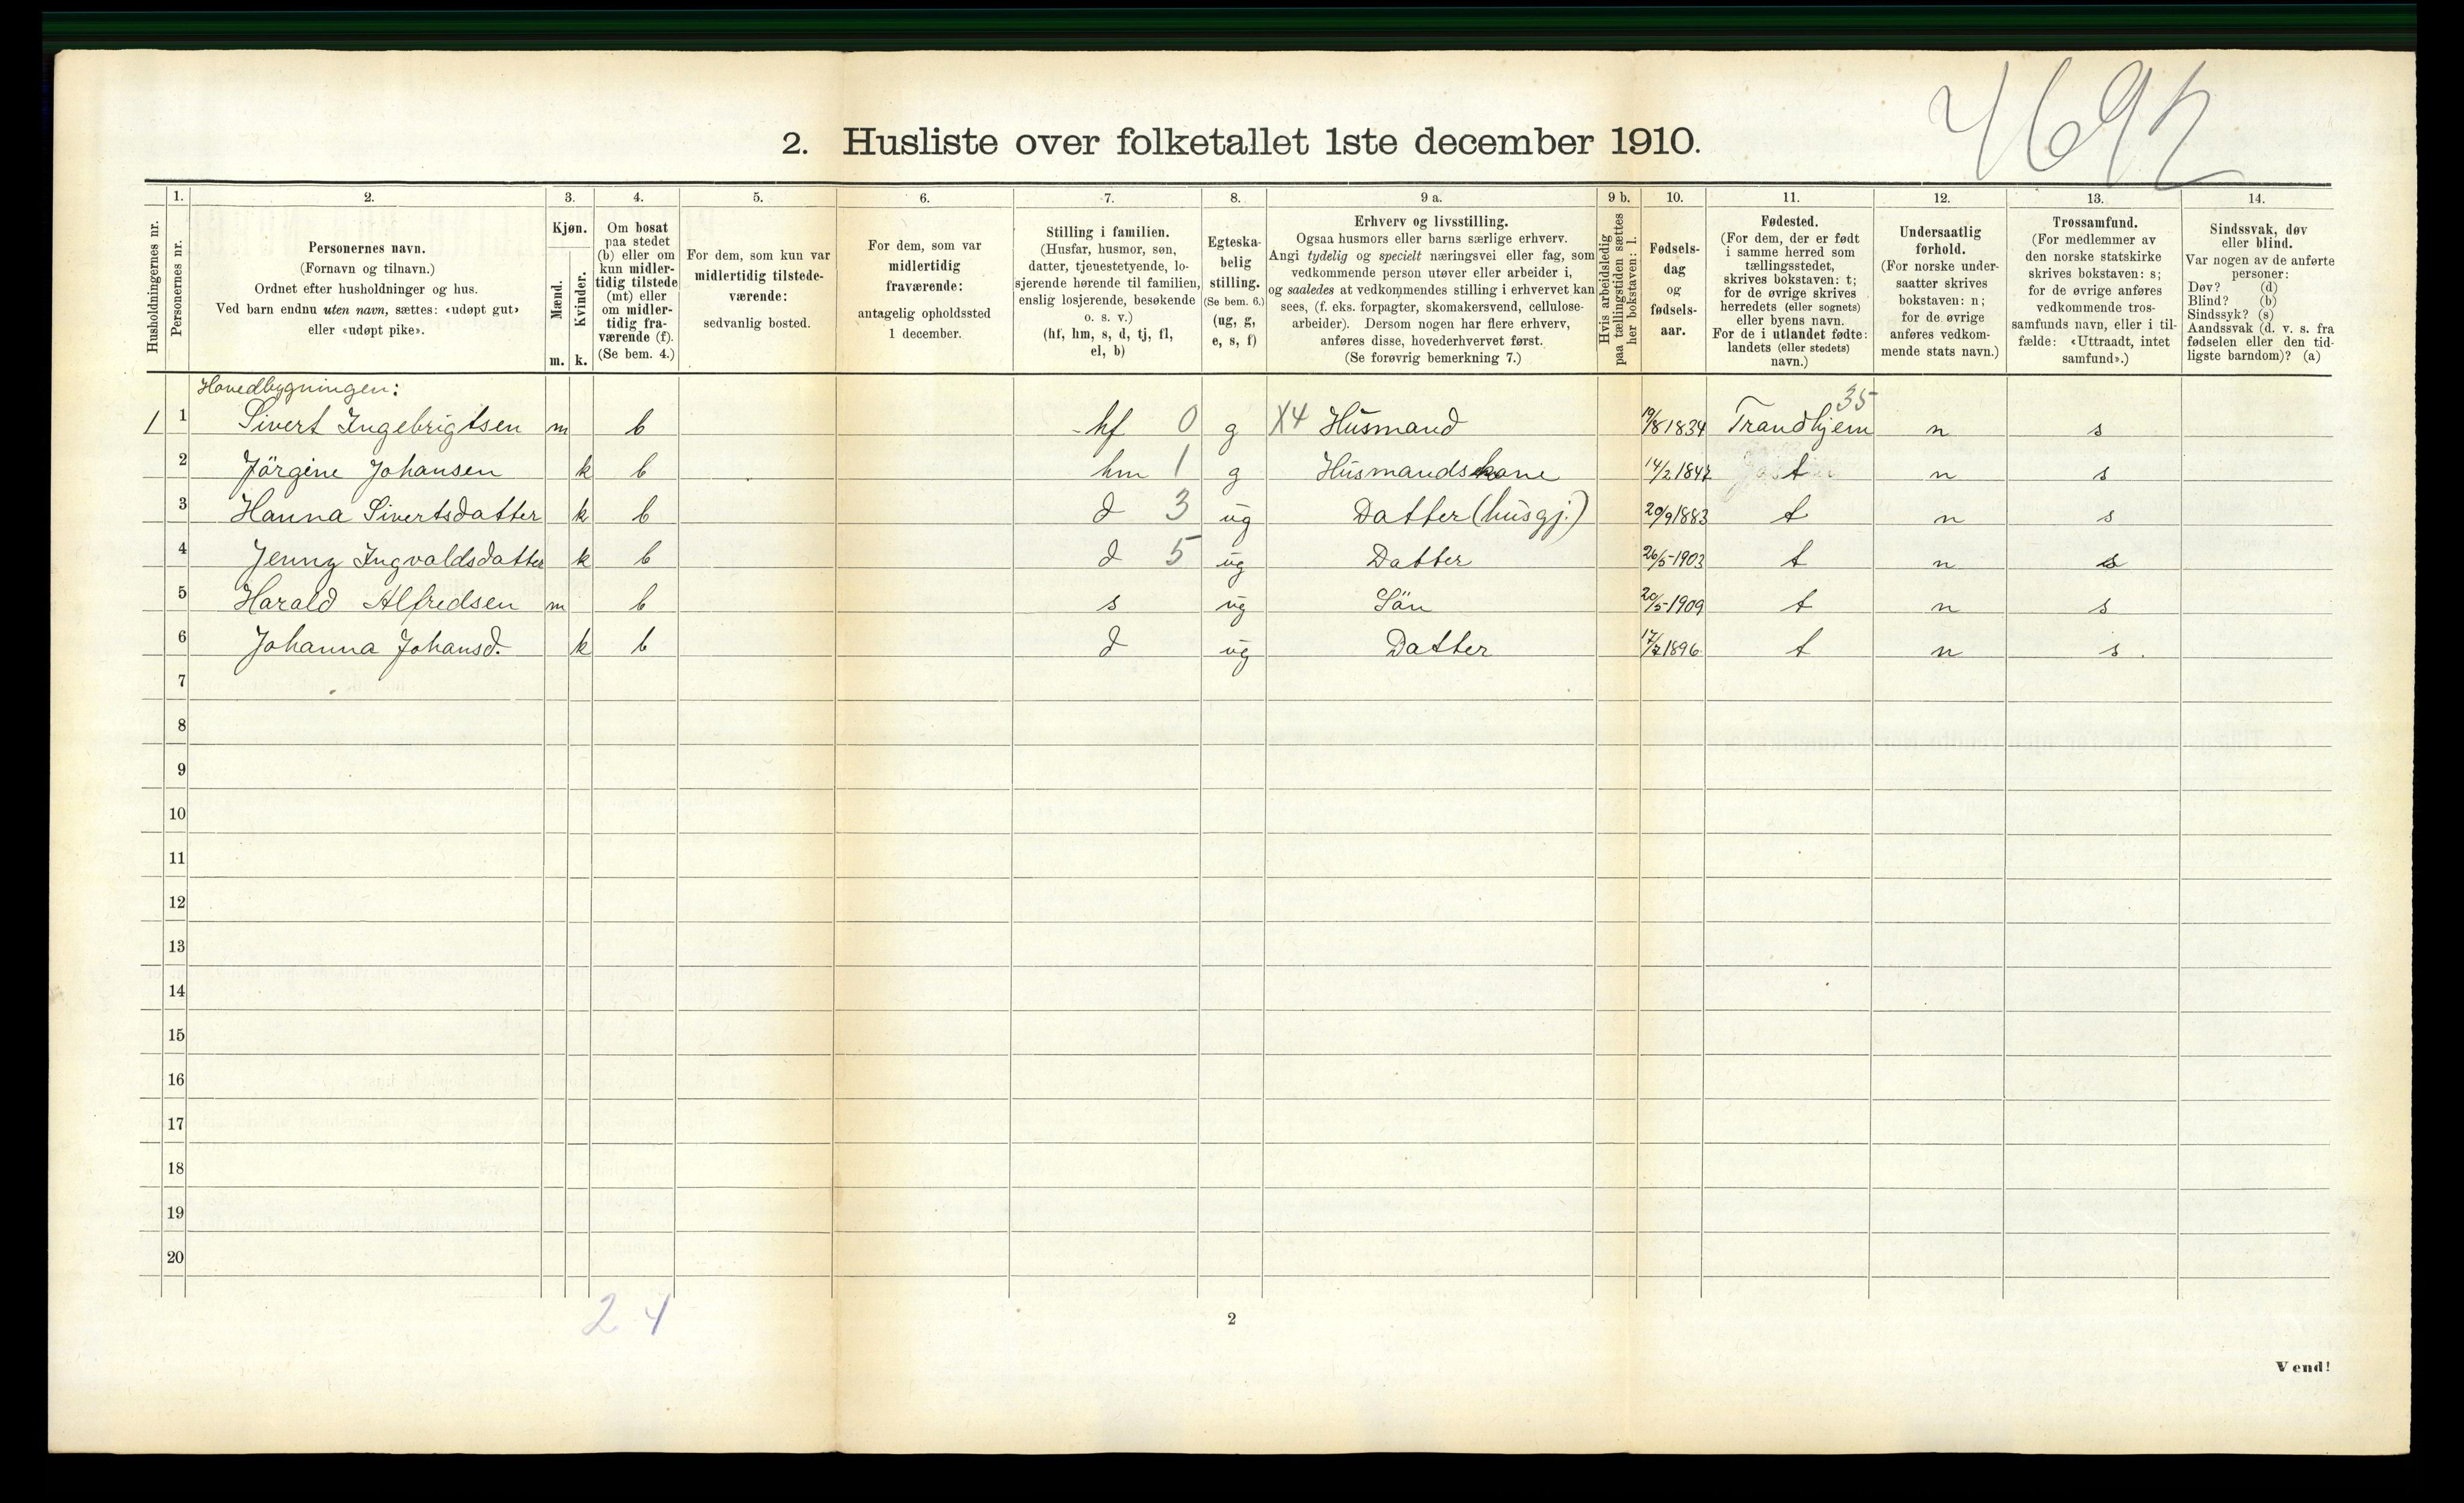 4692
2. Husliste over folketallet 1ste december 1910.
Husholdningernes nr.
1.
Personernes nr.
2.
Personernes navn.
(Fornavn og tilnavn.)
Ordnet efter husholdninger og hus.
Ved barn endnu uten navn, sættes: «udøpt gut»
eller «udøpt pike».
3.
Kjøn.
Mænd.
m.
Kvinder.
k.
4.
Om bosat
paa stedet
(b) eller om
kun midler-
tidig tilstede
(mt) eller
om midler-
tidig fra-
værende (f).
(Se bem. 4.)
5.
For dem, som kun var
midlertidig tilstede-
værende:
sedvanlig bosted.
6.
For dem, som var
midlertidig
fraværende:
antagelig opholdssted
1 december.
7.
Stilling i familien.
(Husfar, husmor, søn,
datter, tjenestetyende, lo-
sjerende hørende til familien,
enslig losjerende, besøkende
o. s. v.)
(hf, hm, s, d, tj, fl,
el, b)
8.
Egteska-
belig
stilling.
(Se bem. 6.)
(ug, g,
e, s, f)
9 a.
Erhverv og livsstilling.
Ogsaa husmors eller barns særlige erhverv.
Angi tydelig og specielt næringsvei eller fag, som
vedkommende person utøver eller arbeider i,
og saaledes at vedkommendes stilling i erhvervet kan
sees, (f. eks. forpagter, skomakersvend, cellulose-
arbeider). Dersom nogen har flere erhverv,
anføres disse, hovederhvervet først.
(Se forøvrig bemerkning 7.)
9 b.
Hvis arbeidsledig
paa tællingstiden sættes
her bokstaven: l.
10.
Fødsels-
dag
og
fødsels-
aar.
11.
Fødested.
(For dem, der er født
i samme herred som
tællingsstedet,
skrives bokstaven: t;
for de øvrige skrives
herredets (eller sognets)
eller byens navn.
For de i utlandet fødte:
landets (eller stedets)
navn.)
12.
Undersaatlig
forhold.
(For norske under-
saatter skrives
bokstaven: n;
for de øvrige
anføres vedkom-
mende stats navn.)
13.
Trossamfund.
(For medlemmer av
den norske statskirke
skrives bokstaven: s;
for de øvrige anføres
vedkommende tros-
samfunds navn, eller i til-
fælde: «Uttraadt, intet
samfund».)
14.
Sindssvak, døv
eller blind.
Var nogen av de anførte
personer:
Døv? (d)
Blind? (b)
Sindssyk? (s)
Aandssvak (d. v. s. fra
fødselen eller den tid-
ligste barndom)? (a)
Hovedbygningen:
35
1 1 Sivert Ingebrigtsen m b - hf 0 g X4 Husmand 19/8 1834 Trandhjem n s
2 Jörgine Johansen k b hm 1 g Husmandskone 14/2 1847 t n s
3 Hanna Sivertsdatter k b d 3 ug Datter (husgj.) 20/9 1883 t n s
4 Jenny Ingvaldsdatter k b d 5 ug Datter 26/5-1903 t n s
5 Harald Alfredsen m b s ug Sön 20/5-1909 t n s
6 Johanna Johansd. k b d ug Datter 17/7 1896. t n s.
7
8
9
10
11
12
13
14
15
16
17
18
19
20
2 4
2
Vend!